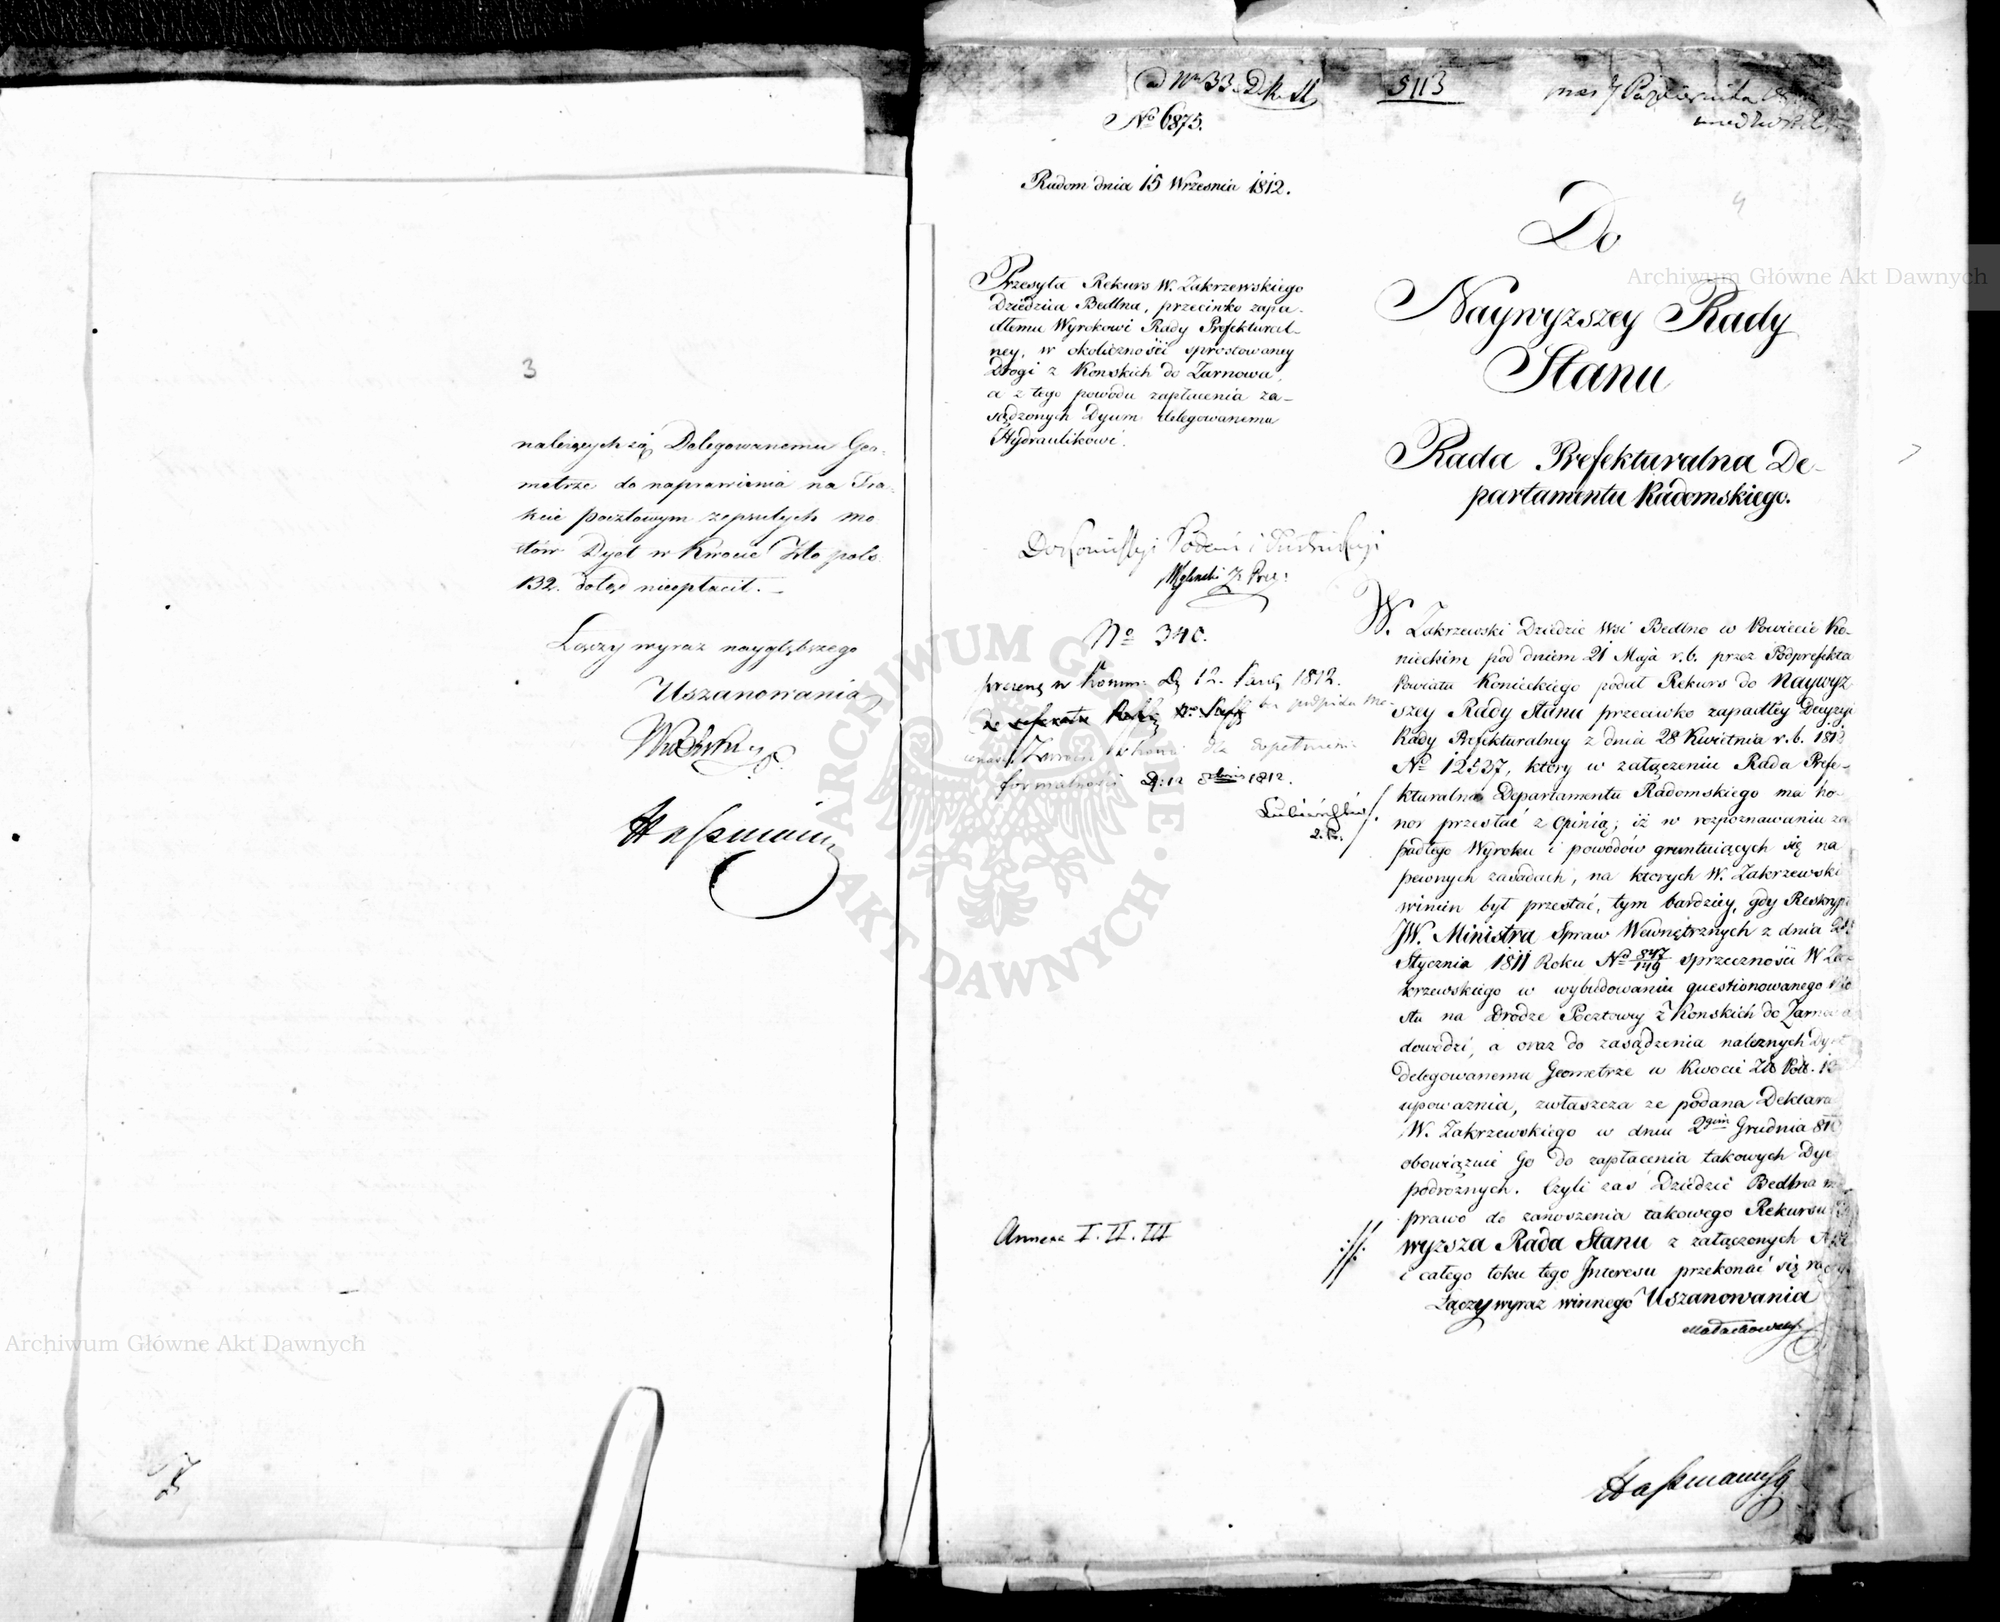 3
należących się Delegowanemu Geo-
metrze do naprawienia na Tra-
kcie pocztowym zepsutych mo-
stów Dyet w kwocie Złto pols
132. dotąd nieopłacił.
Łączy wyraz naygłębszego
Uszanowania
Haßmann
ad Nro 33
5113
7 Października
No 6875.
Radom dnia 15 Wrzesnia 1812.
Przesyła Rekurs W. Zakrzewskiego
Dziedzica Bedlna, przeciwko zapa-
dłemu Wyrokowi Rady Prefektural-
ney, w okoliczności sprostowaney
Drogi z Konskich do Zarnowa,
a z tego powodu zapłacenia za-
sądzonych Dyum delegowanemu
Hydraulikowi.
Do
Naywyzszey Rady
Stanu
Rada Prefekturalna De-
partamentu Radomskiego.
Do Komissyi Podań i
No 340.
1812.
bez podpisu
formalności D: 12 8bris 1812.
Annexa I. II. III
W. Zakrzewski Dziedzic Wsi Bedlno w Powiecie Ko-
nieckim pod dniem 21 Maja r. b. przez Podprefekta
Powiatu Konieckiego podał Rekurs do Naywyż
szey Rady Stanu przeciwko zapadłey Decyzyi
Rady Prefekturalney z dnia 28 Kwietnia r. b. 1812
No 12537, który w załączeniu Rada Prefe-
kturalna Departamentu Radomskiego ma ho-
nor przesłać z Opinią; iż w rozpoznawaniu za
padłego Wyroku i powodów gruntuiących się na
pewnych zasadach, na których W. Zakrzewski
winien był przestać, tym bardziey, gdy Reskryp
JW. Ministra Spraw Wewnętrznych z dnia
Stycznia 1811 Roku No 847/149 sprzeczności W Za-
krzewskiego w wybudowaniu questionowanego Mo
stu na Drodze Pocztowy z Konskich do Zarnowa
dowodzi, a oraz do zasądzenia należnych Dyet
delegowanemu Geometrze w Kwocie Złt Pols. 13
upoważnia, zwłaszcza ze podana Deklara
W. Zakrzewskiego w dniu 2gim Grudnia 810
obowiązuie Go do zapłacenia takowych Dye
podróżnych. Czyli zaś Dziedzic Bedlna ma
prawo do zanoszenia takowego Rekursu
wyzsza Rada Stanu z załączonych
i całego toku tego Interesu przekonać się raczy.
Łączy wyraz winnego Uszanowania
Małachowski
Haßmann
Archiwum Główne Akt Dawnych
Archiwum Główne Akt Dawnych
ARCHIWUM GŁÓWNE AKT DAWNYCH